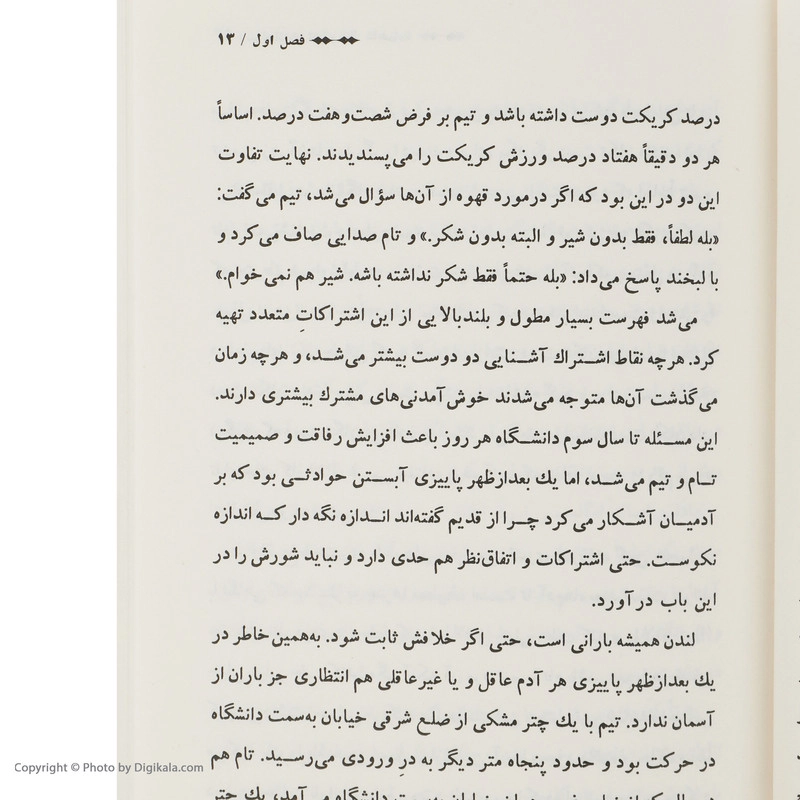 فصل اول / ۱۳
درصد کریکت دوست داشته باشد و تیم بر فرض شصت‌وهفت درصد. اساساً
هر دو دقیقاً هفتاد درصد ورزش کریکت را می‌پسندیدند. نهایت تفاوت
این دو در این بود که اگر درمورد قهوه از آن‌ها سؤال می‌شد، تیم می‌گفت:
«بله لطفاً، فقط بدون شیر و البته بدون شکر.» و تام صدایی صاف می‌کرد و
با لبخند پاسخ می‌داد: «بله حتماً فقط شکر نداشته باشه. شیر هم نمی‌خوام.»
می‌شد فهرست بسیار مطول و بلندبالایی از این اشتراکاتِ متعدد تهیه
کرد. هرچه نقاط اشتراك آشنایی دو دوست بیشتر می‌شد، و هرچه زمان
می‌گذشت آن‌ها متوجه می‌شدند خوش‌آمدنی‌های مشترك بیشتری دارند.
این مسئله تا سال سوم دانشگاه هر روز باعث افزایش رفاقت و صمیمیت
تام و تیم می‌شد، اما یك بعدازظهر پاییزی آبستن حوادثی بود که بر
آدمیان آشکار می‌کرد چرا از قدیم گفته‌اند اندازه نگه دار که اندازه
نکوست. حتی اشتراکات و اتفاق‌نظر هم حدی دارد و نباید شورش را در
این باب درآورد.
لندن همیشه بارانی است، حتی اگر خلافش ثابت شود. به‌همین‌خاطر در
یك بعدازظهر پاییزی هر آدم عاقل و یا غیرعاقلی هم انتظاری جز باران از
آسمان ندارد. تیم با یك چتر مشکی از ضلع شرقی خیابان به‌سمت دانشگاه
در حرکت بود و حدود پنجاه متر دیگر به درِ ورودی می‌رسید. تام هم
دانشگاه می‌آمد، یك چتر
Copyright © Photo by Digikala.com